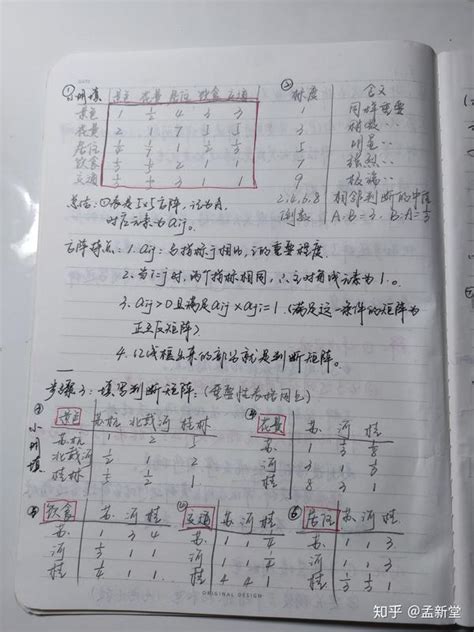 ① 小明填 景色 花费 居住 饮食 交通
景色 1 1/2 4 3 3
花费 2 1 7 5 5
居住 1/4 1/7 1 1/2 1/3
饮食 1/3 1/5 2 1 1
交通 1/3 1/5 3 1 1
② 标度 含义
1 同样重要
3 稍微··
5 明显··
7 强烈··
9 极端··
2.4.6.8 相邻判断的中值
倒数 A:B=3, B:A=1/3
总结: ①表是5×5方阵, 记为A,
对应元素为aij。
方阵特点: 1. aij: 与指标j相比, i的重要程度。
2. 当i=j时, 两个指标相同, ∴主对角线元素为1。
3. aij>0且满足aij×aji=1.(满足这一条件的矩阵为
正互反矩阵)
4. 红线框出来的部分就是判断矩阵。
步骤3: 填写判断矩阵: (重要性表格同上)
小明填
景色 苏杭 北戴河 桂林
苏杭 1 2 5
北戴河 1/2 1 2
桂林 1/5 1/2 1
花费 苏 河 桂
苏 1 1/3 1/8
河 3 1 1/3
桂 8 3 1
饮食 苏 河 桂
苏 1 3 4
河 1/3 1 1
桂 1/4 1 1
交通 苏 河 桂
苏 1 1 1/4
河 1 1 1/4
桂 4 4 1
⑥ 居住 苏 河 桂
苏 1 1 3
河 1 1 3
桂 1/3 1/3 1
ORIGINAL DESIGN
知乎 @孟新堂